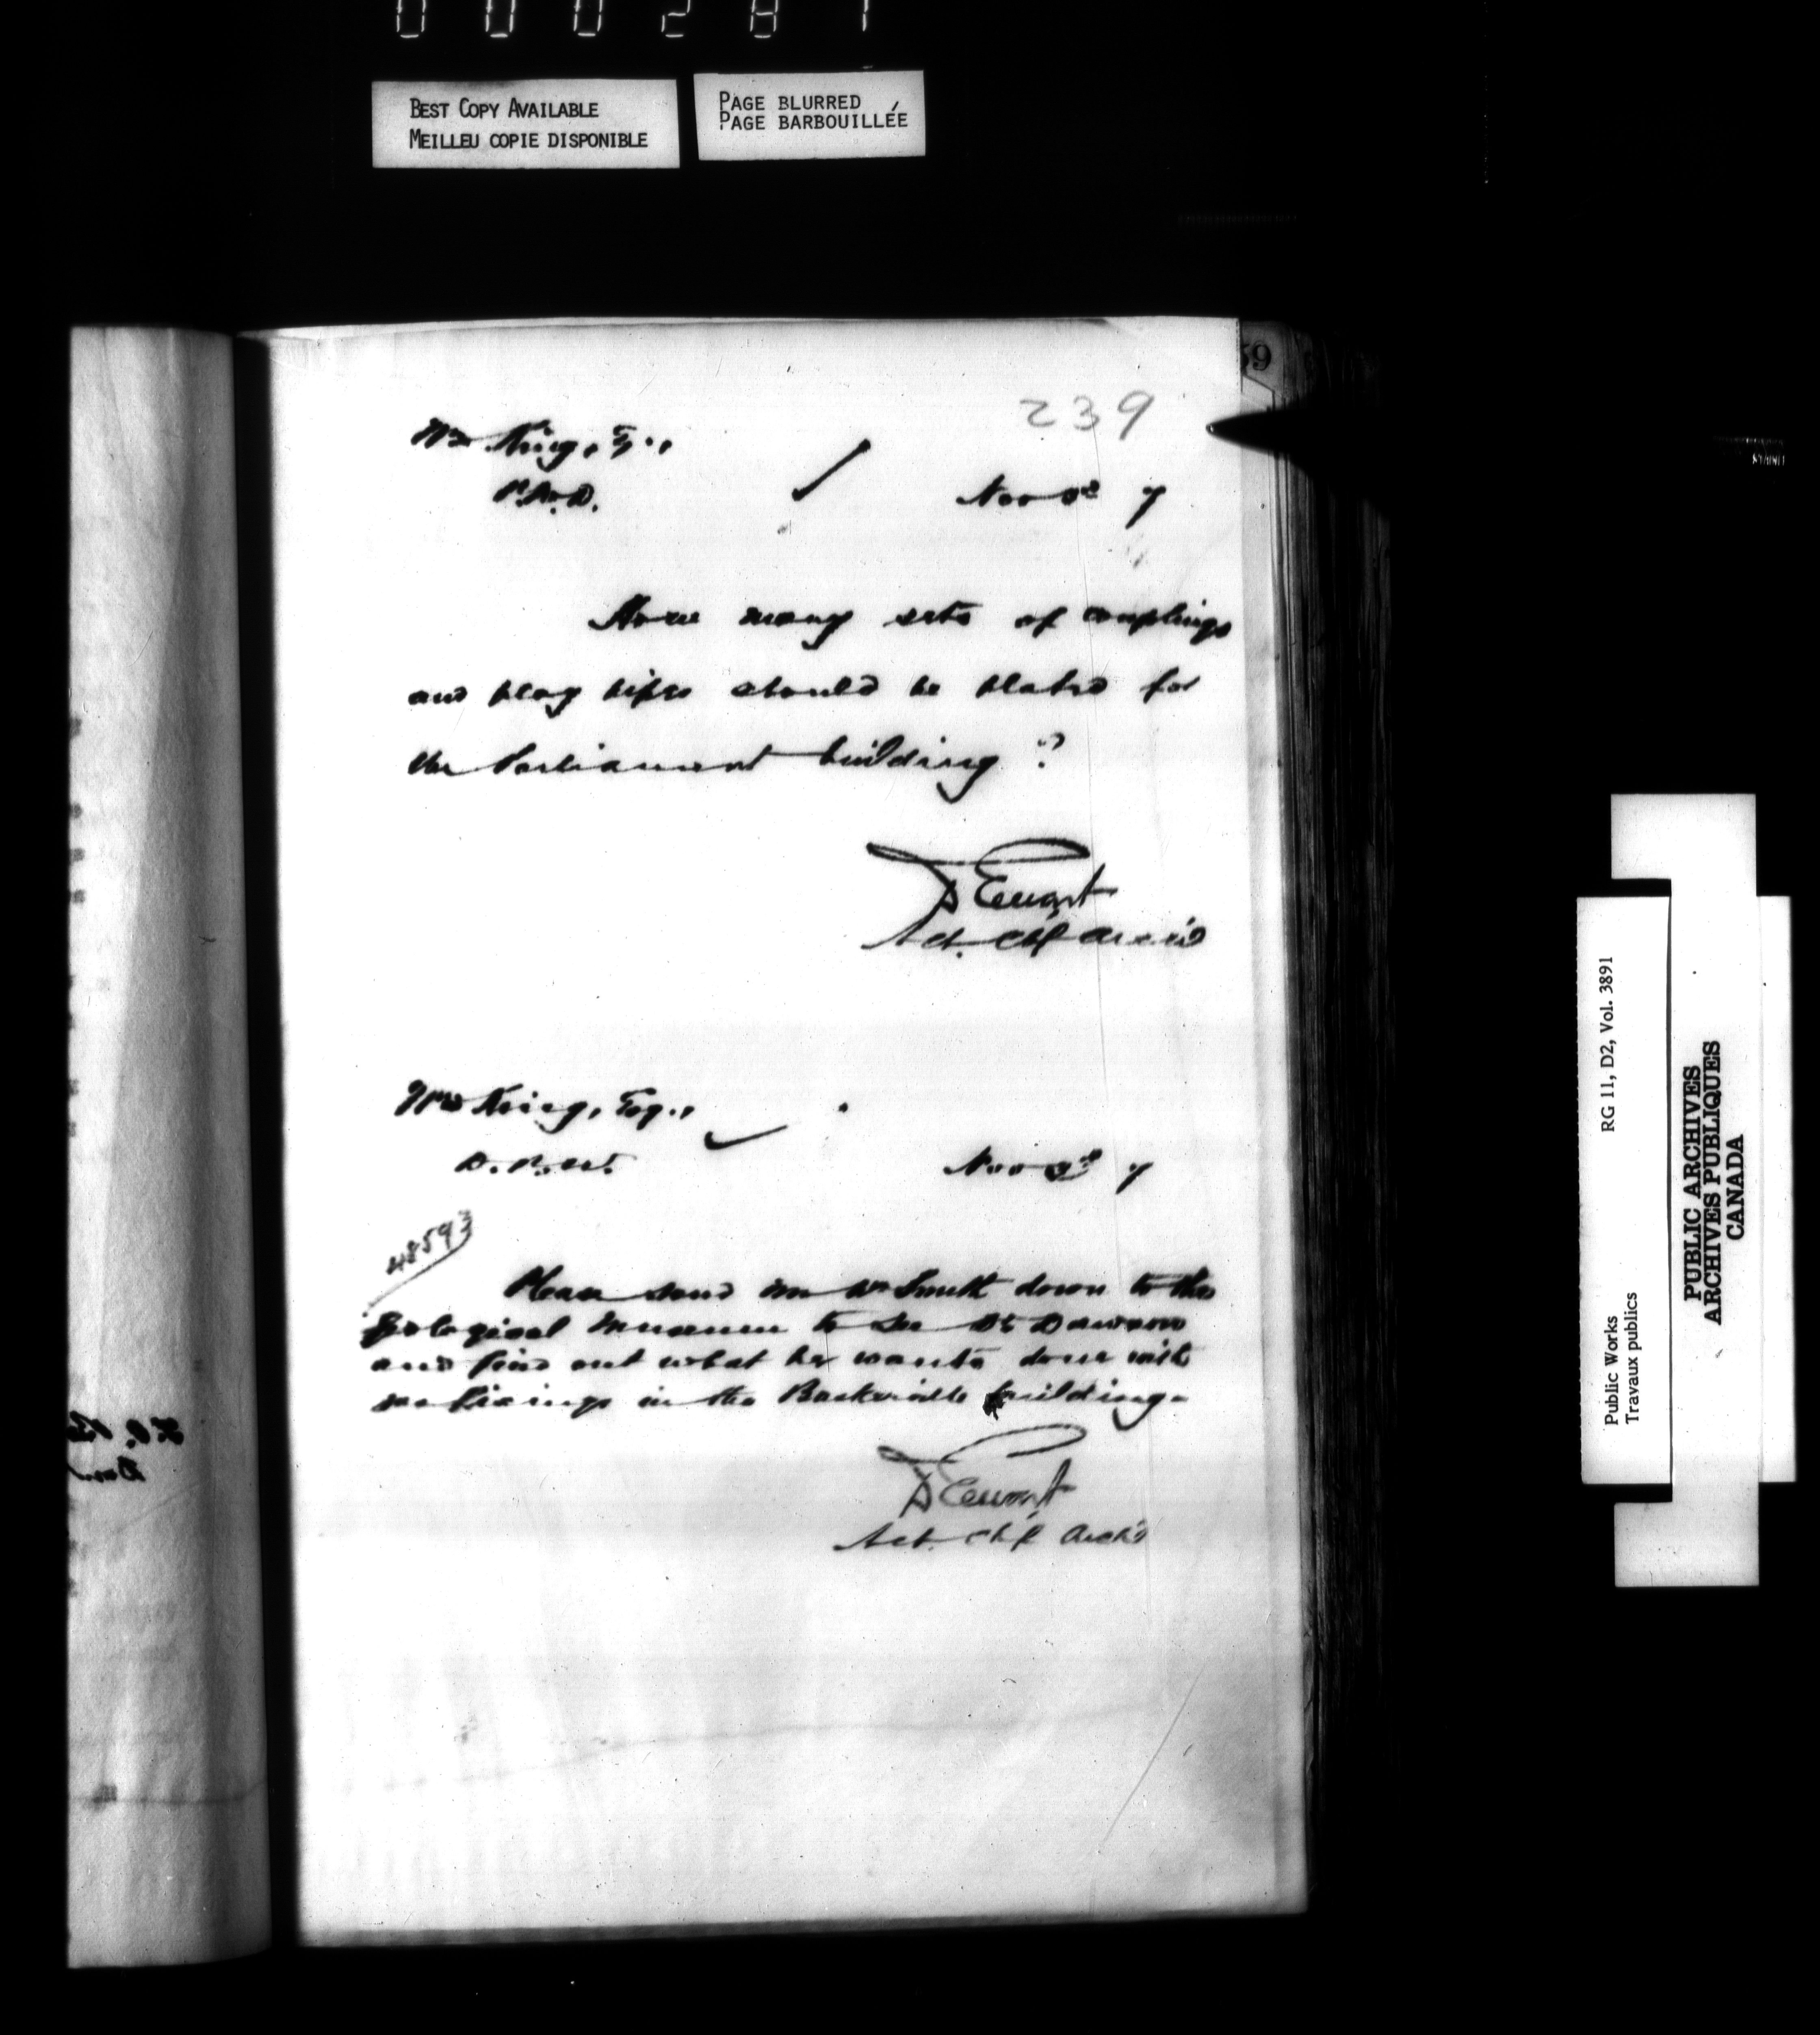 000287
BEST COPY AVAILABLE
MEILLEU COPIE DISPONIBLE
PAGE BLURRED
PAGE BARBOUILLÉE
59
239
Wm King, Esq.,
P.W.D.
Nov 3rd 7
How many sets of couplings
and play pipes should be plated for
the Parliament building ?
D Ewart
Act. Chf Archt
Wm King, Esq.,
D.P.W.
Nov 3rd 7
48593
Please send Mr Wm Smith down to the
Geological Museum to see Dr Dawson
and find out what he wants done with
partitions in the Baskerville building.
D Ewart
Act. Chf Archt
Public Works
Travaux publics
RG 11, D2, Vol. 3891
PUBLIC ARCHIVES
ARCHIVES PUBLIQUES
CANADA